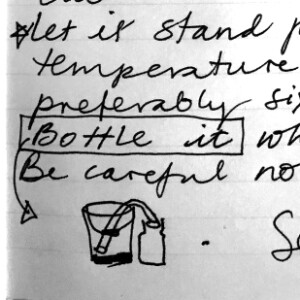 let it stand
temperature
preferably si
Bottle it wh
Be careful no